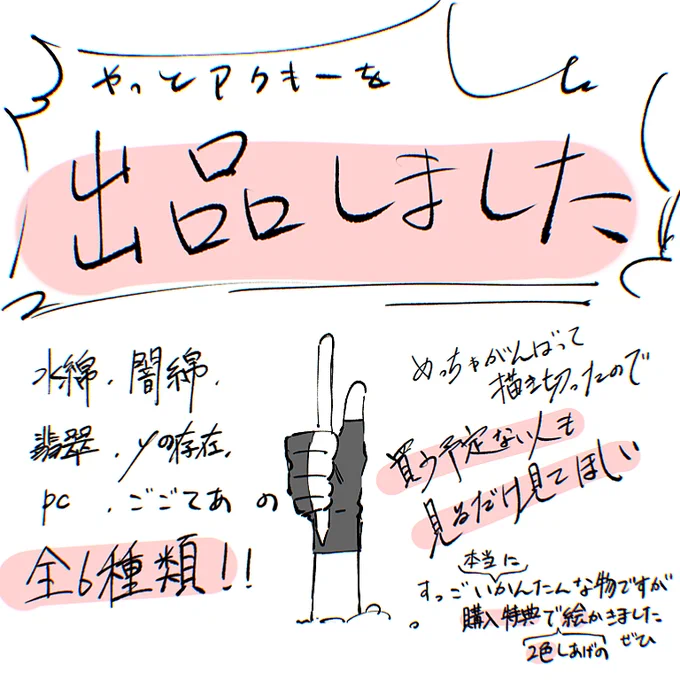 やっとアクキーを
出品しました
水綿、闇綿、
翡翠、yの存在、
pc、ごごてあ の
全6種類!!
めっちゃがんばって
描き切ったので
買う予定ない人も
見るだけ見てほしい
本当に
すっごいかんたんな物ですが
購入特典で絵かきました
2色しあげの ぜひ